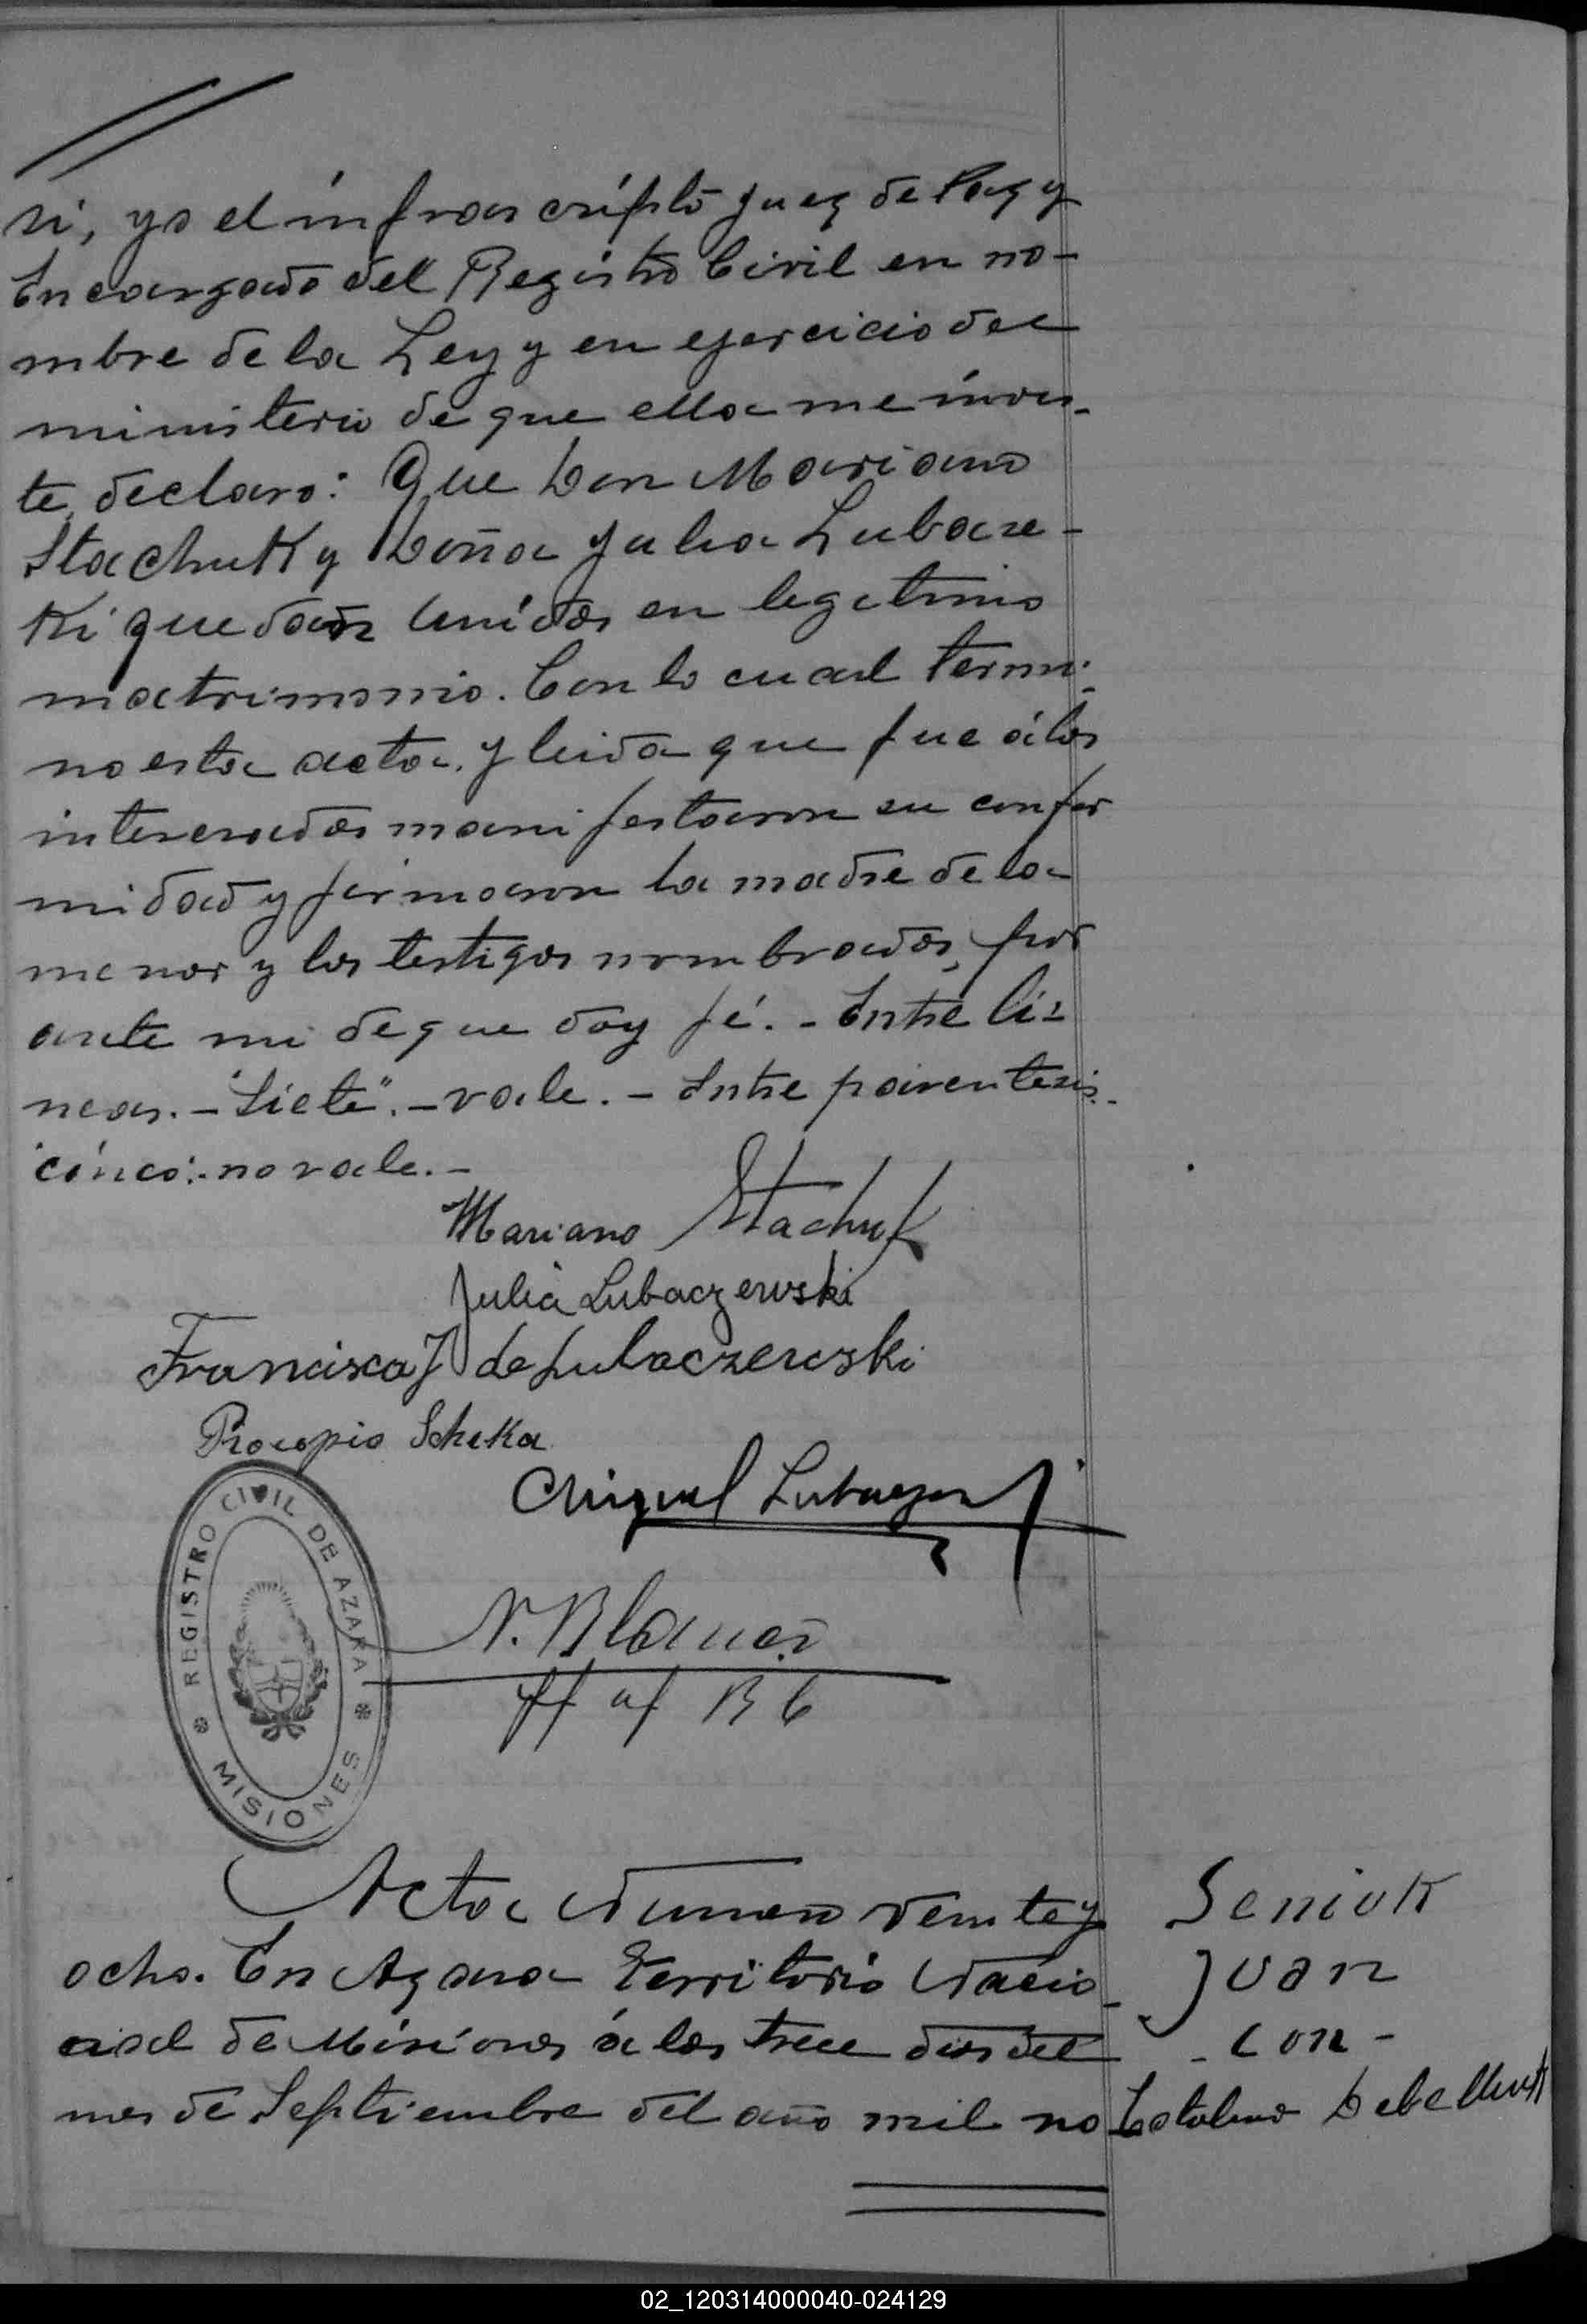 si, yo el infrascripto Juez de Paz y
Encargado del Registro Civil en no-
mbre de la Ley y en ejercicio del
ministerio de que ella me invis-
te, declaro: Que Don Mariano
Stachuk y Doña Julia Lubacze-
ki quedan unidos en legitimo
matrimonio. Con lo cual termi-
no esta acta, y leida que fue á los
interesados manifestaron su confor
midad y firmaron la madre de la
menor y los testigos nombrados, por
ante mi de que doy fé. - Entre li-
neas. - "Siete". - vale. - Entre parentesis.
"cinco". - no vale. -
Mariano Stachuk
Julia Lubaczewski
Francisca J de Lubaczewski
Procopio Scheka
Miguel
N. Blanco
REGISTRO CIVIL DE AZARA
MISIONES
Acta Numero veinte y
ocho. En Azara Territorio Nacio-
nal de Misiones á los trece dias del
mes de Septiembre del año mil no
Seniuk
Juan
- con -